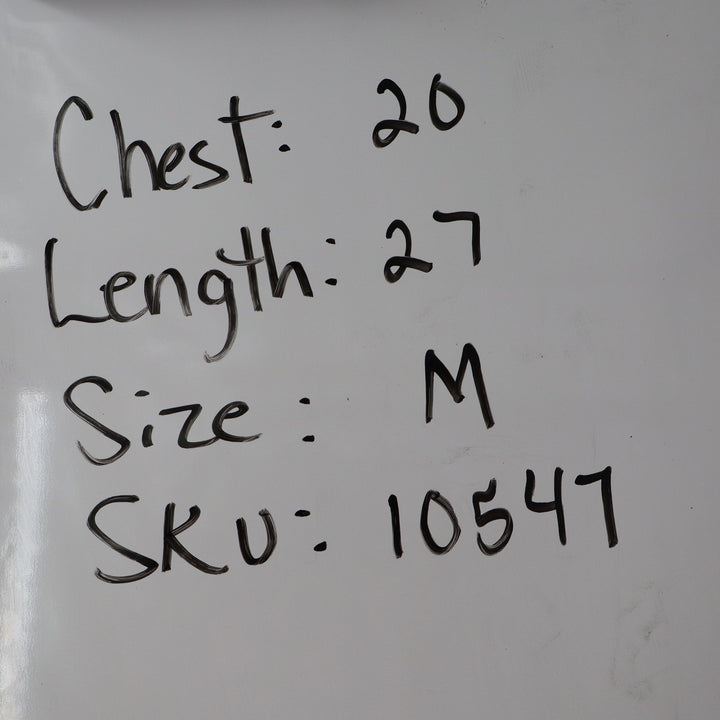 Chest: 20
Length: 27
Size: M
SKU: 10547